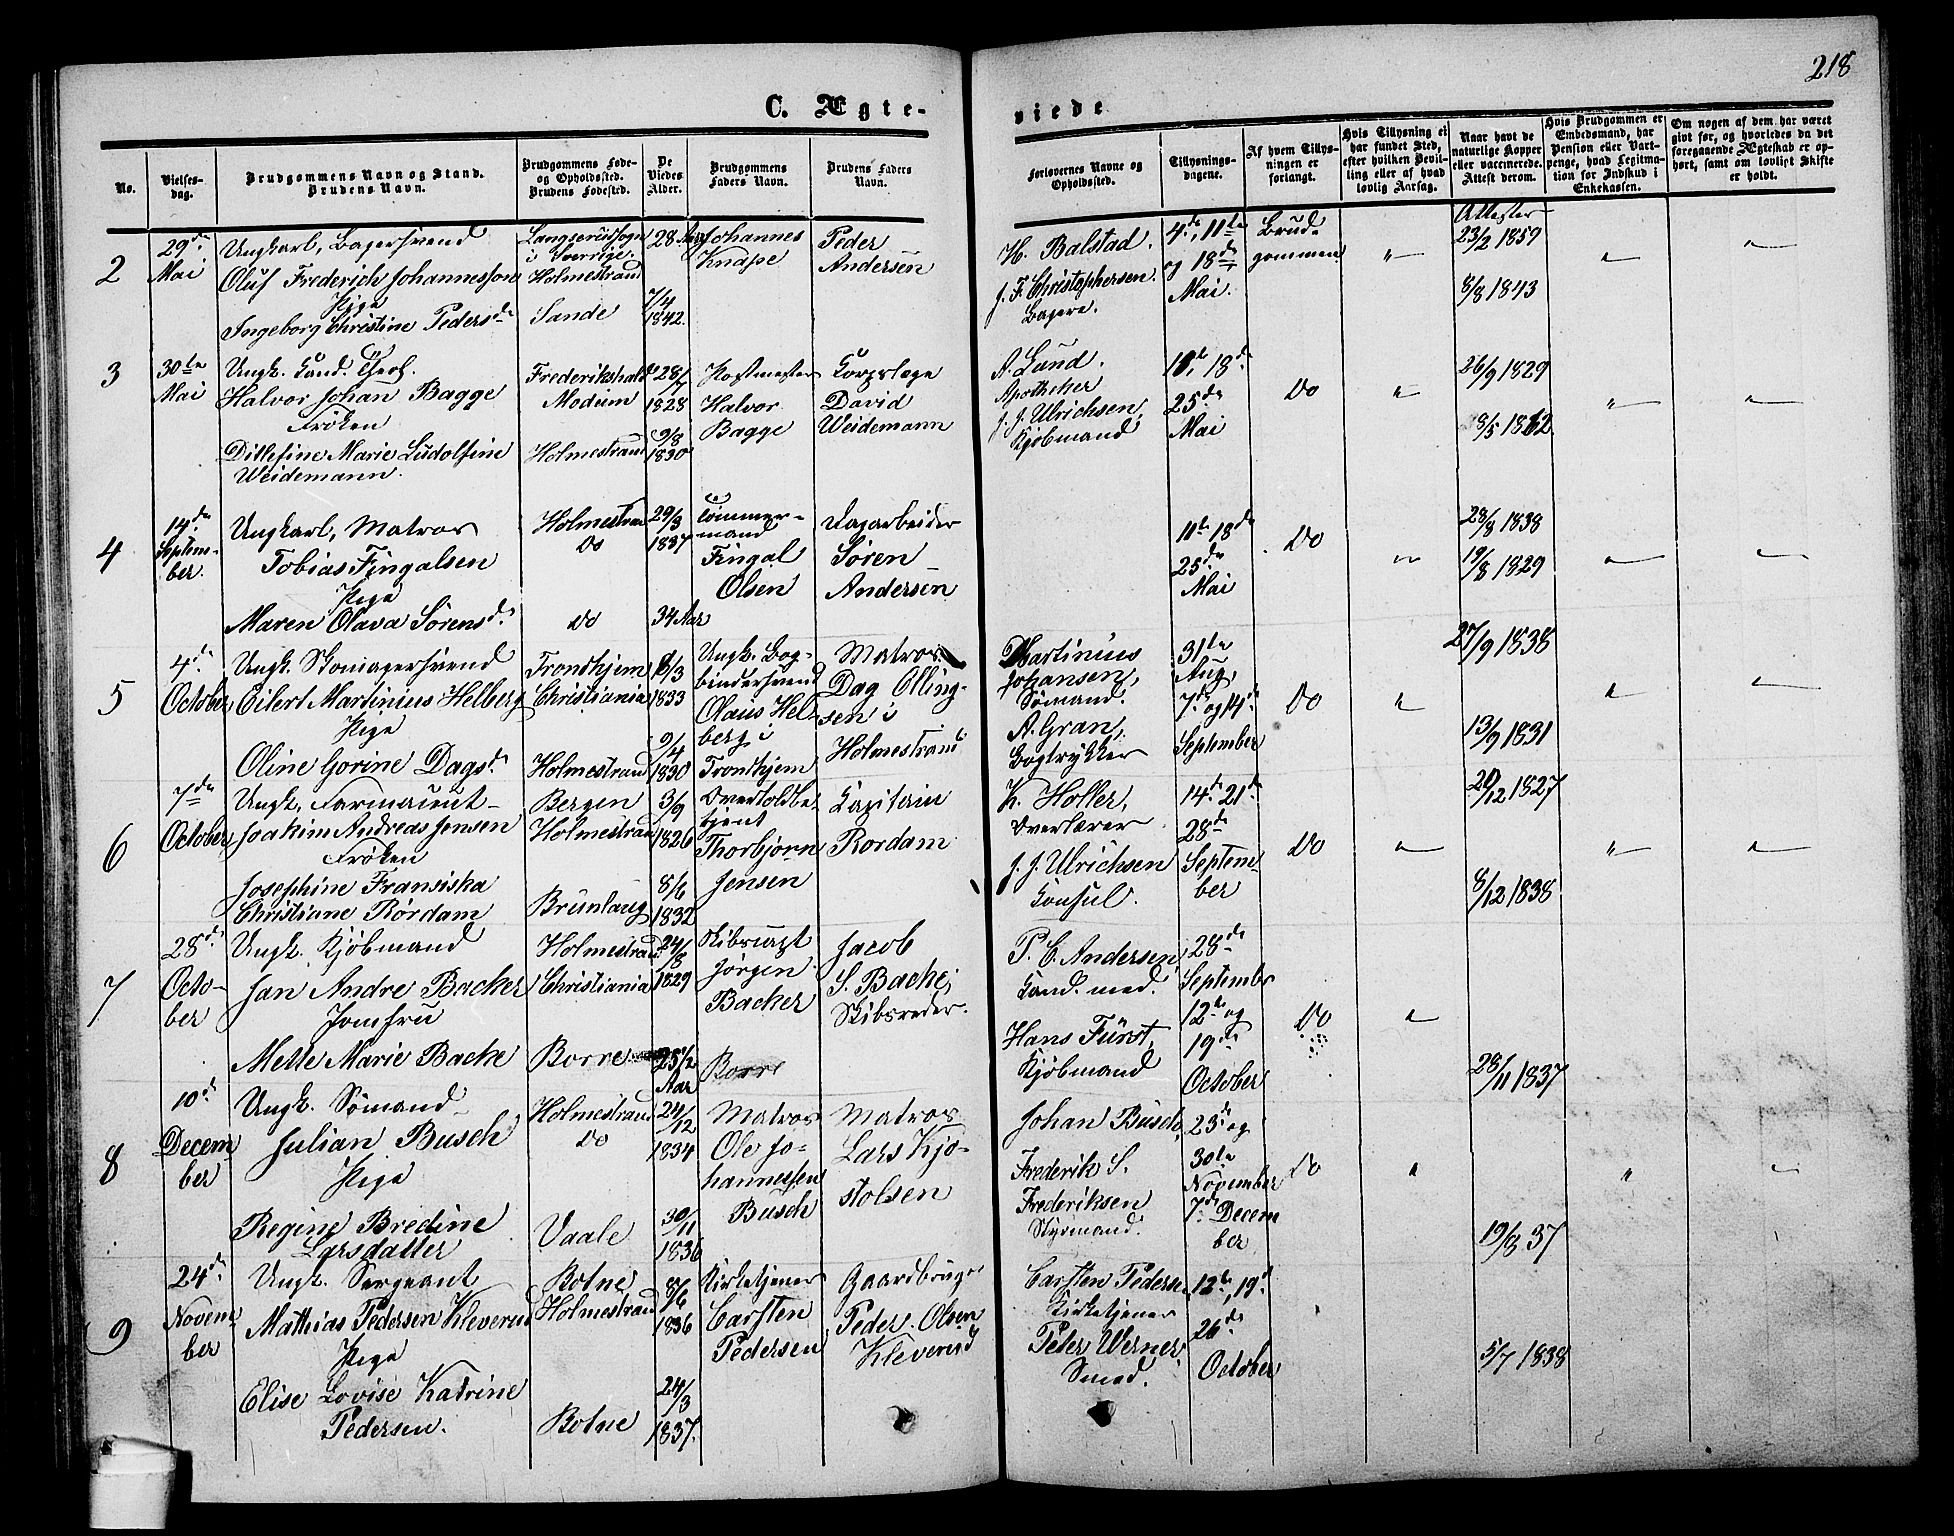 218
C. Ægte-
viede
No.
Vielses-
dag.
Brudgommens Navn og Stand.
Brudens Navn.
Brudgommens Føde-
og Opholdssted.
Brudens Fødested.
De
Viedes
Alder.
Brudgommens
Faders Navn.
Brudens Faders
Navn.
Forlovernes Navne og
Opholdssted.
Tillysnings-
dagene.
Af hvem Tillys-
ningen er
forlangt.
Hvis Tillysning ei
har fundet Sted,
efter hvilken Bevil-
ling eller af hvad
lovlig Aarsag.
Naar havt de
naturlige Kopper
eller vaccinerede.
Attest derom.
Hvis Brudgommen er
Embedsmand, har
Pension eller Vart-
penge, hvad Legitma-
tion for Indskud i
Enkekassen.
Om nogen af dem har været
givt før, og hvorledes da det
foregaaende Ægteskab er op-
hørt, samt om lovligt Skifte
er holdt.
2
29de
Mai
Ungkarl, Bagersvend
Oluf Frederich Johannesson
Pige
Ingeborg Christine Pedersd.
i Sverrige.
Holmestrand
Sande
28 Aar
7/4
1842.
Johannes
Knape
Peder
Andersen
H. Balstad.
J. F. Christophersen.
Bagere.
4de, 11te
og 18de
Mai.
Brud-
gommen
"
Attester
23/2 1859
8/8 1843
"
"
3
30te
Mai
Ungk. Cand. Theol.
Halvor Johan Bagge
Frøken
Ditlefine Marie Ludolfine
Weidemann.
Frederikshald
Modum
Holmestrand
28/7
1828
9/8
1830
Postmester
Halvor
Bagge
Corpslæge
David
Weidemann
A. Lund.
Apotheker
J. J. Ulrichsen,
Kjøbmand
11te 18de
25de
Mai
Do
"
26/9 1829
8/5 1812
"
"
4
14de
Septem-
ber.
Ungkarl, Matros
Tobias Fingalsen
Pige
Maren Olava Sørensd.
Holmestrand
Do
Do
29/3
1837
34 Aar
Tømmer-
mand
Fingal
Olsen
Dagarbeider
Søren
Andersen
11te 18de
25de
Mai
Do
"
28/8 1838
19/8 1829
"
"
5
4de
October
Ungk. Skomagersvend
Eilert Martinius Helberg
Pige
Oline Gorine Dagsd.
Trondhjem
Christiania
Holmestrand
6/3
1833
9/4
1830
Ungk. Bog-
bindersvend
Olaus Hel-
berg i
Trondhjem
Matros
Dag Olling-
sen i
Holmestrand
Martinius
Johansen,
Sømand.
A. Gran,
Bogtrykker
31te
Aug.
7de og 14de
September
Do
"
27/9 1838
13/9 1831
"
"
6
7de
October
Ungk.
Joakim Andreas Jensen
Frøken
Josephine Fransiska
Christiane Rørdam
Bergen
Holmestrand
Brunlaug
3/9
1826
8/6
1832
Overtoldbe-
tjent
Thorbjørn
Jensen
Capitain
Rørdam
K. Holler,
Overlærer
J. J. Ulrichsen
Consul.
14de 21de
28de
Septem-
ber
Do
"
20/12 1827
8/12 1838
"
"
7
28de
Octo-
ber
Ungk. Kjøbmand
Jan Andre Backer
Jomfru
Mette Marie Backe
Holmestrand
Christiania
Borre
24/8
1829
25 1/2
Aar
Jørgen
Backer
Borre
Jacob
S. Backe,
Skibsreder.
P. C. Andersen
Cand. med.
Hans Fürst,
Kjøbmand
28de
Septembr
12te og
19de
October
Do
"
28/11 1837
8
10de
Decem
ber
Ungk. Sømand
Julian Busch
Pige
Regine Bredine
Larsdatter
Holmestrand
Do
Vaale
24/12
1834
30/11
1836
Matros
Ole Jo-
hannessen
Busch
Matros
Lars Kjø-
stolsen
Johan Busch,
Frederik S.
Frederiksen
Styrmand.
23de og
30te
November
7de Decem
ber
Do
"
19/8 37
"
"
9
24de
Novem
ber
Ungk. Sergeant
Mathias Pedersen Kleverud
Pige
Elise Lovise Katrine
Pedersen.
Botne
Holmestrand
Botne
8/6
1836
24/3
1837.
Kirketjener
Carsten
Pedersen
Gaardbruger
Peder Olsen
Kleverud
Carsten Pedersen
Kirketjener
Peter Werner
Smed.
12te, 19de
26de
October
5/7 1838